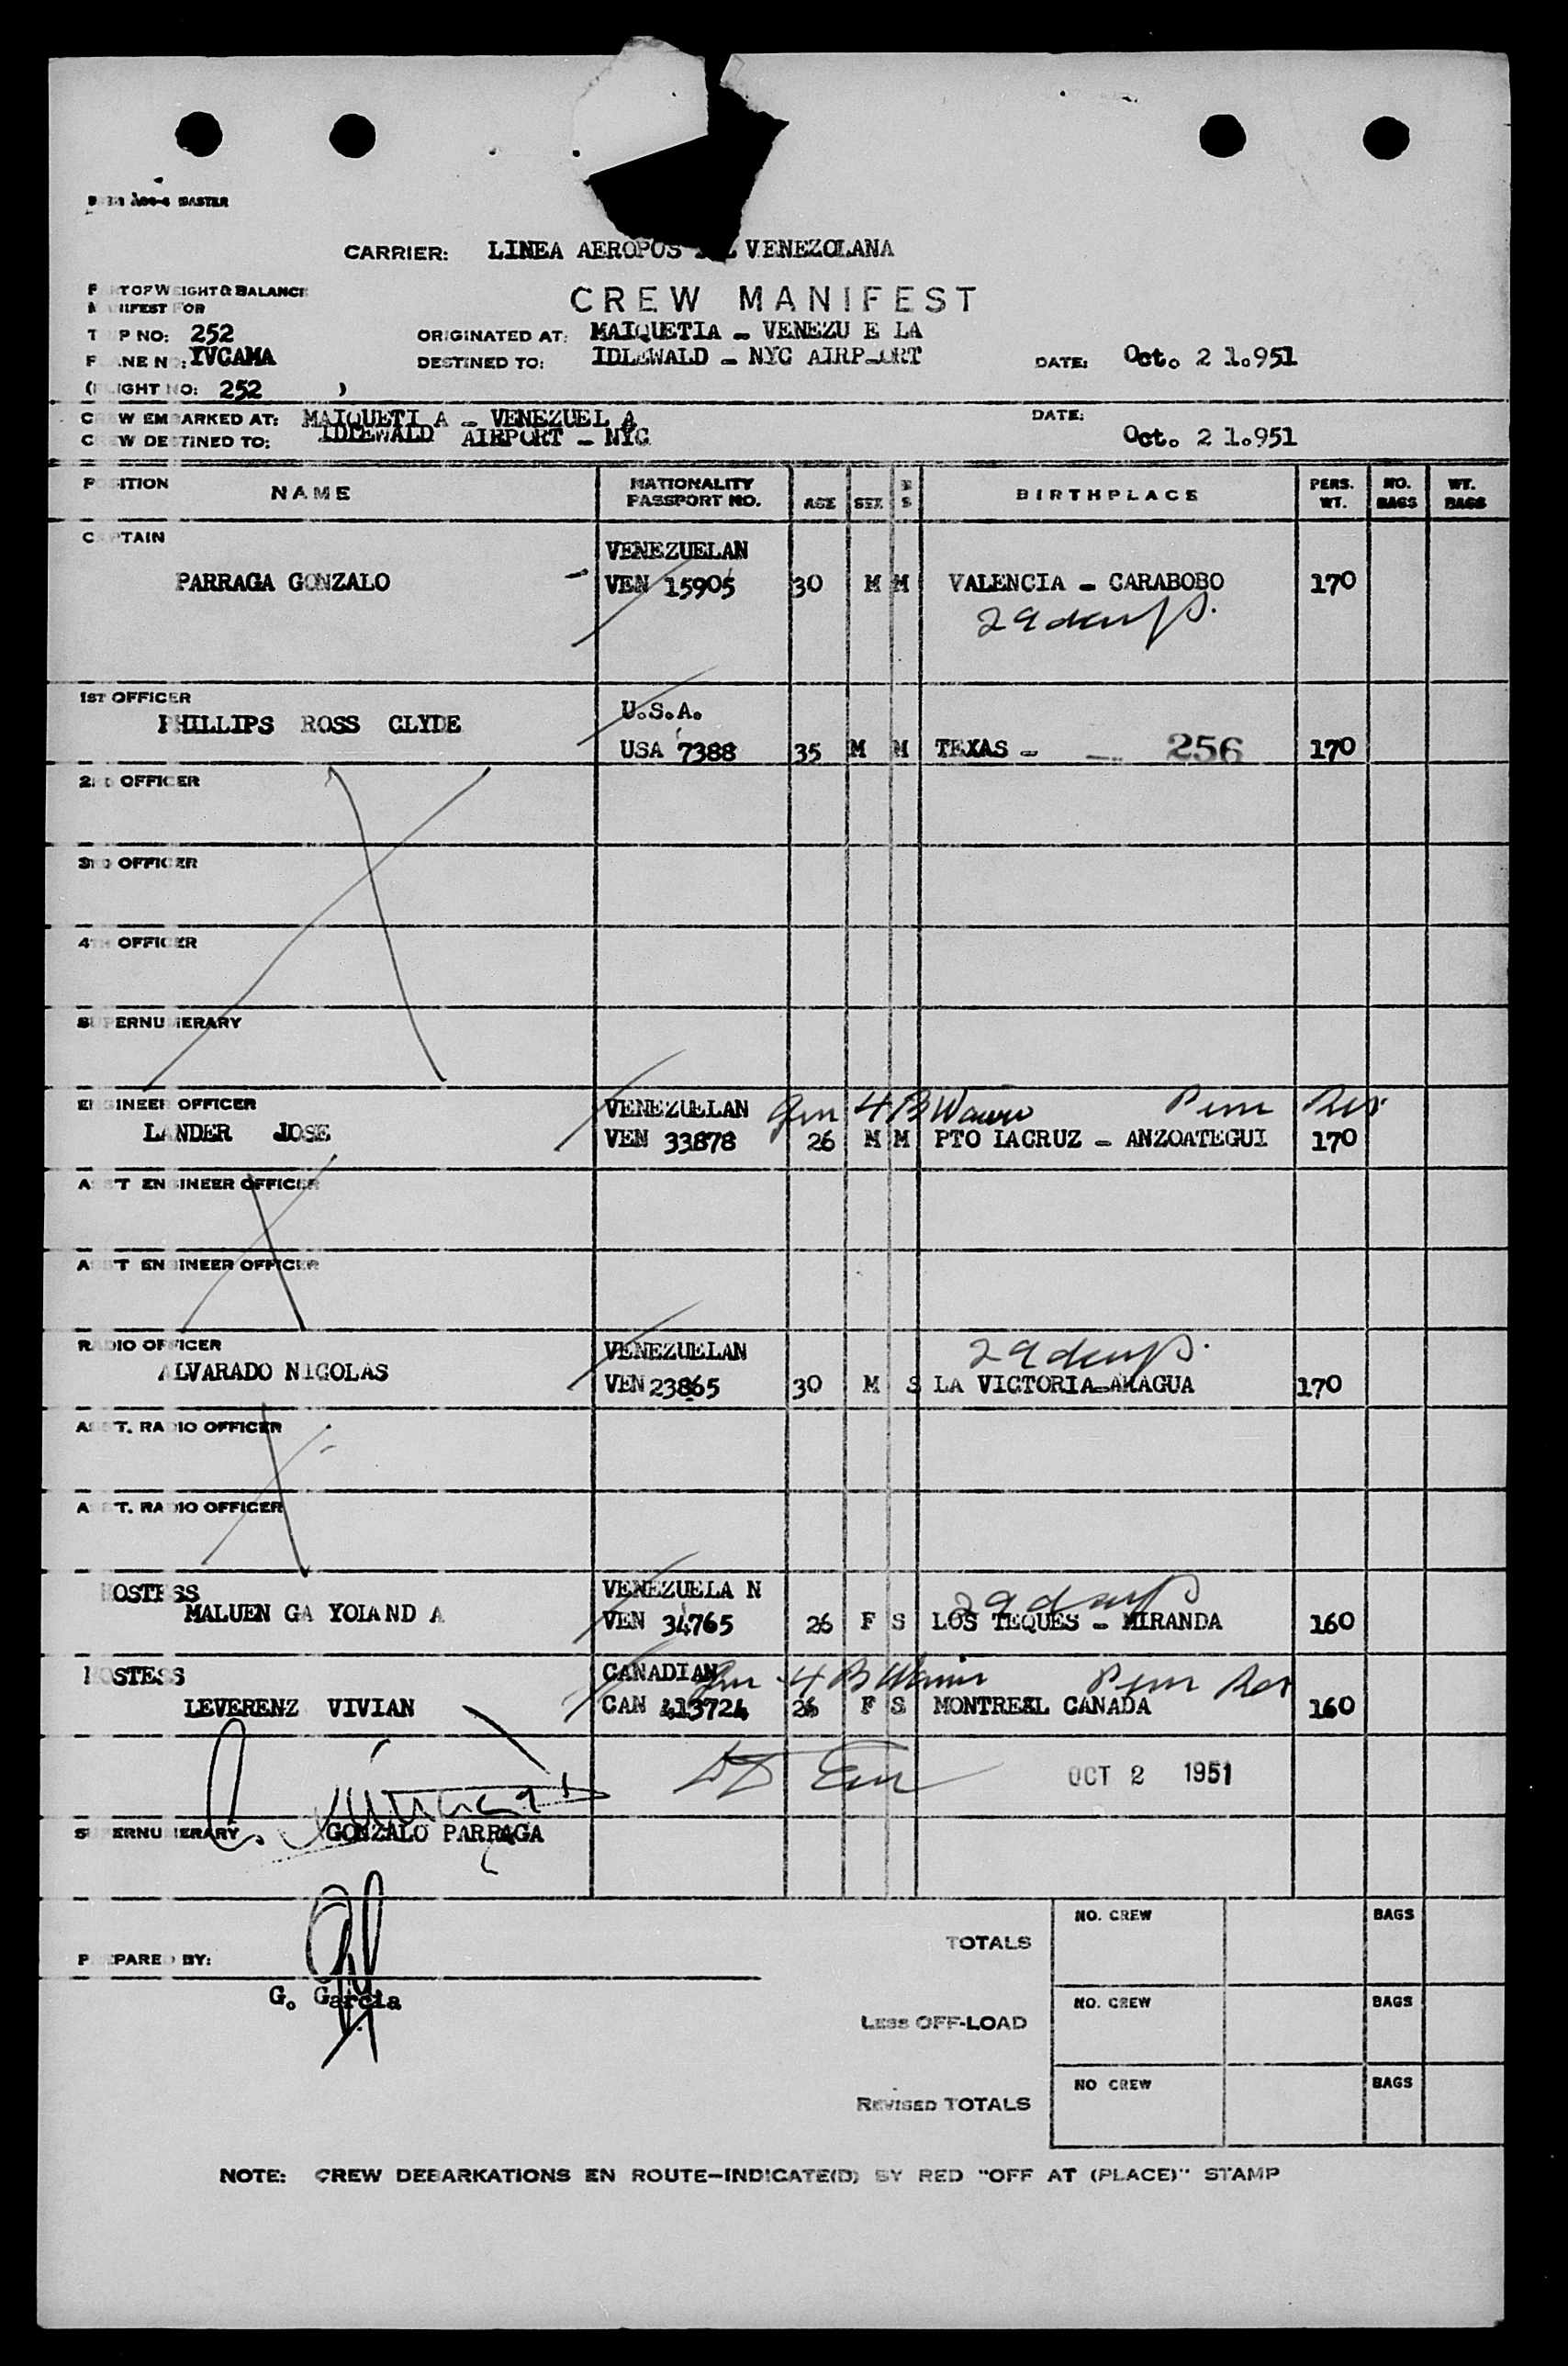 MASTER
CARRIER: LINEA AEROPOS VENEZOLANA
WEIGHT & BALANCE
CREW MANIFEST
NO: 252 ORIGINATED AT: MAIQUETIA - VENEZU E LA
YVCAMA DESTINED TO: IDLEWALD - NYC AIRPORT DATE: Oct. 2 1.951
NO: 252 )
EMBARKED AT: MAIQUETI A - VENEZUEL A DATE:
DESTINED TO: IDLEWALD AIRPORT - NYC Oct. 2 1.951
POSITION NAME NATIONALITY PASSPORT NO. AGE SEX BIRTHPLACE PERS. WT. NO. BAGS WT. BAGS
CAPTAIN VENEZUELAN
PARRAGA GONZALO VEN 15905 30 M M VALENCIA - CARABOBO 170
29 days
1ST OFFICER U.S.A.
PHILLIPS ROSS CLYDE USA 7388 35 M M TEXAS - 256 170
2ND OFFICER
3RD OFFICER
4TH OFFICER
SUPERNUMERARY
ENGINEER OFFICER VENEZUELAN
LANDER JOSE VEN 33878 26 M M PTO LACRUZ - ANZOATEGUI 170
ENGINEER OFFICER
ENGINEER OFFICER
RADIO OFFICER VENEZUELAN 29 days
ALVARADO NICOLAS VEN 23865 30 M S LA VICTORIA-ARAGUA 170
RADIO OFFICER
RADIO OFFICER
HOSTESS VENEZUELA N 29 days
MALUEN GA YOLAND A VEN 34765 26 F S LOS TEQUES - MIRANDA 160
HOSTESS CANADIAN
LEVERENZ VIVIAN CAN 413724 26 F S MONTREAL CANADA 160
OCT 2 1951
SUPERNUMERARY GONZALO PARRAGA
NO. CREW BAGS
TOTALS
PREPARED BY:
G. Garcia
NO. CREW BAGS
LESS OFF-LOAD
NO CREW BAGS
REVISED TOTALS
NOTE: CREW DEBARKATIONS EN ROUTE-INDICATE(D) BY RED "OFF AT (PLACE)" STAMP